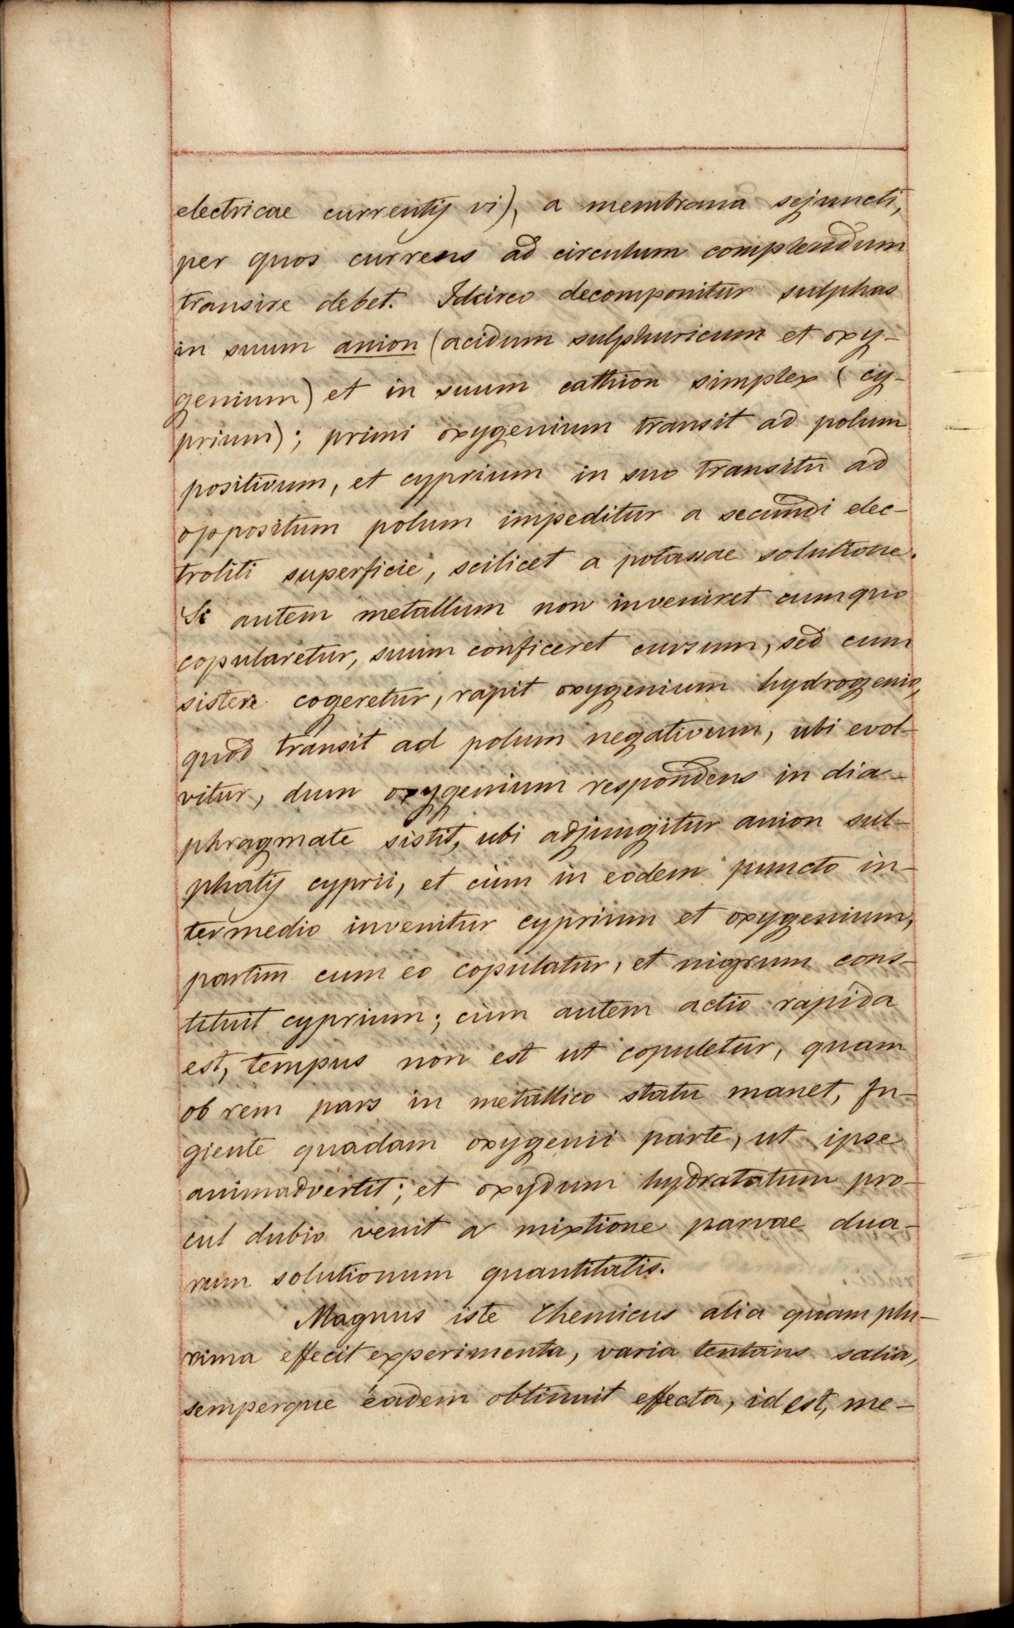 electricae currentij vi), a membrana sejuncti,
per quos currens ad circulum complendum
transire debet. Idcirco decomponitur sulphas
in suum anion (acidum sulphuricum et oxy-
genium) et in suum cathion simplex (cy-
prium); primi oxygenium transit ad polum
positivum, et cyprium in suo transitu ad
oppositum polum impeditur a secundi elec-
troliti superficie, scilicet a potassae solutione.
Si autem metallum non inveniret cum quo
copularetur, suum conficeret cursum, sed cum
sistere cogeretur, rapit oxygenium hydrogenio,
quod transit ad polum negativum, ubi evol-
vitur, dum oxygenium respondens in dia-
phragmate sistit, ubi adjungitur anion sul-
phatij cyprii, et cùm in eodem puncto in-
termedio invenitur cyprium et oxygenium,
partim cum eo copulatur, et nigrum cons-
tituit cyprium; cùm autem actio rapida
est, tempus non est ut copuletur, quam
ob rem pars in metallico statu manet, fu-
giente quadam oxygenii parte, ut ipse
animadvertit; et oxydum hydratatum pro-
cul dubio venit a mixtione parvae dua-
rum solutionum quantitatis.
Magnus iste Chemicus alia quam plu-
rima effecit experimenta, varia tentans salia,
semperque eadem obtinuit effecta, id est, me-